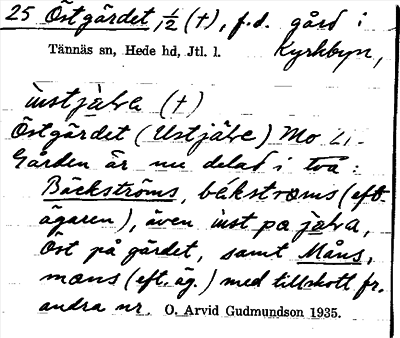 25 Östgärdet, 1/2 (†), f.d. gård i
Tännäs sn, Hede hd, Jtl. l. Kyrkbyn,
ùstjàlva (†)
Östgärdet (Ustjälve) Mo
Gården är nu delad i två:
Bäckströms, bäkströms (eft.
ägaren), även ùst pa jalva,
Öst på gärdet, samt Måns,
måns (eft. äg.) med tillskott fr.
andra nr. O. Arvid Gudmundson 1935.